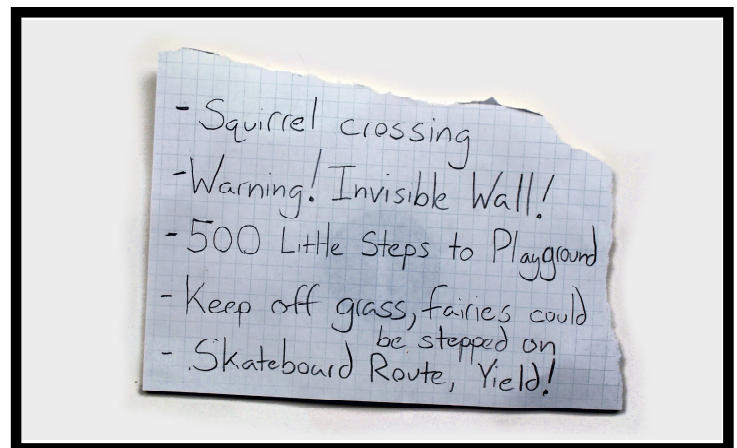 - Squirrel crossing
- Warning! Invisible Wall!
- 500 Little Steps to Playground
- Keep off grass, fairies could
be stepped on
- Skateboard Route, Yield!